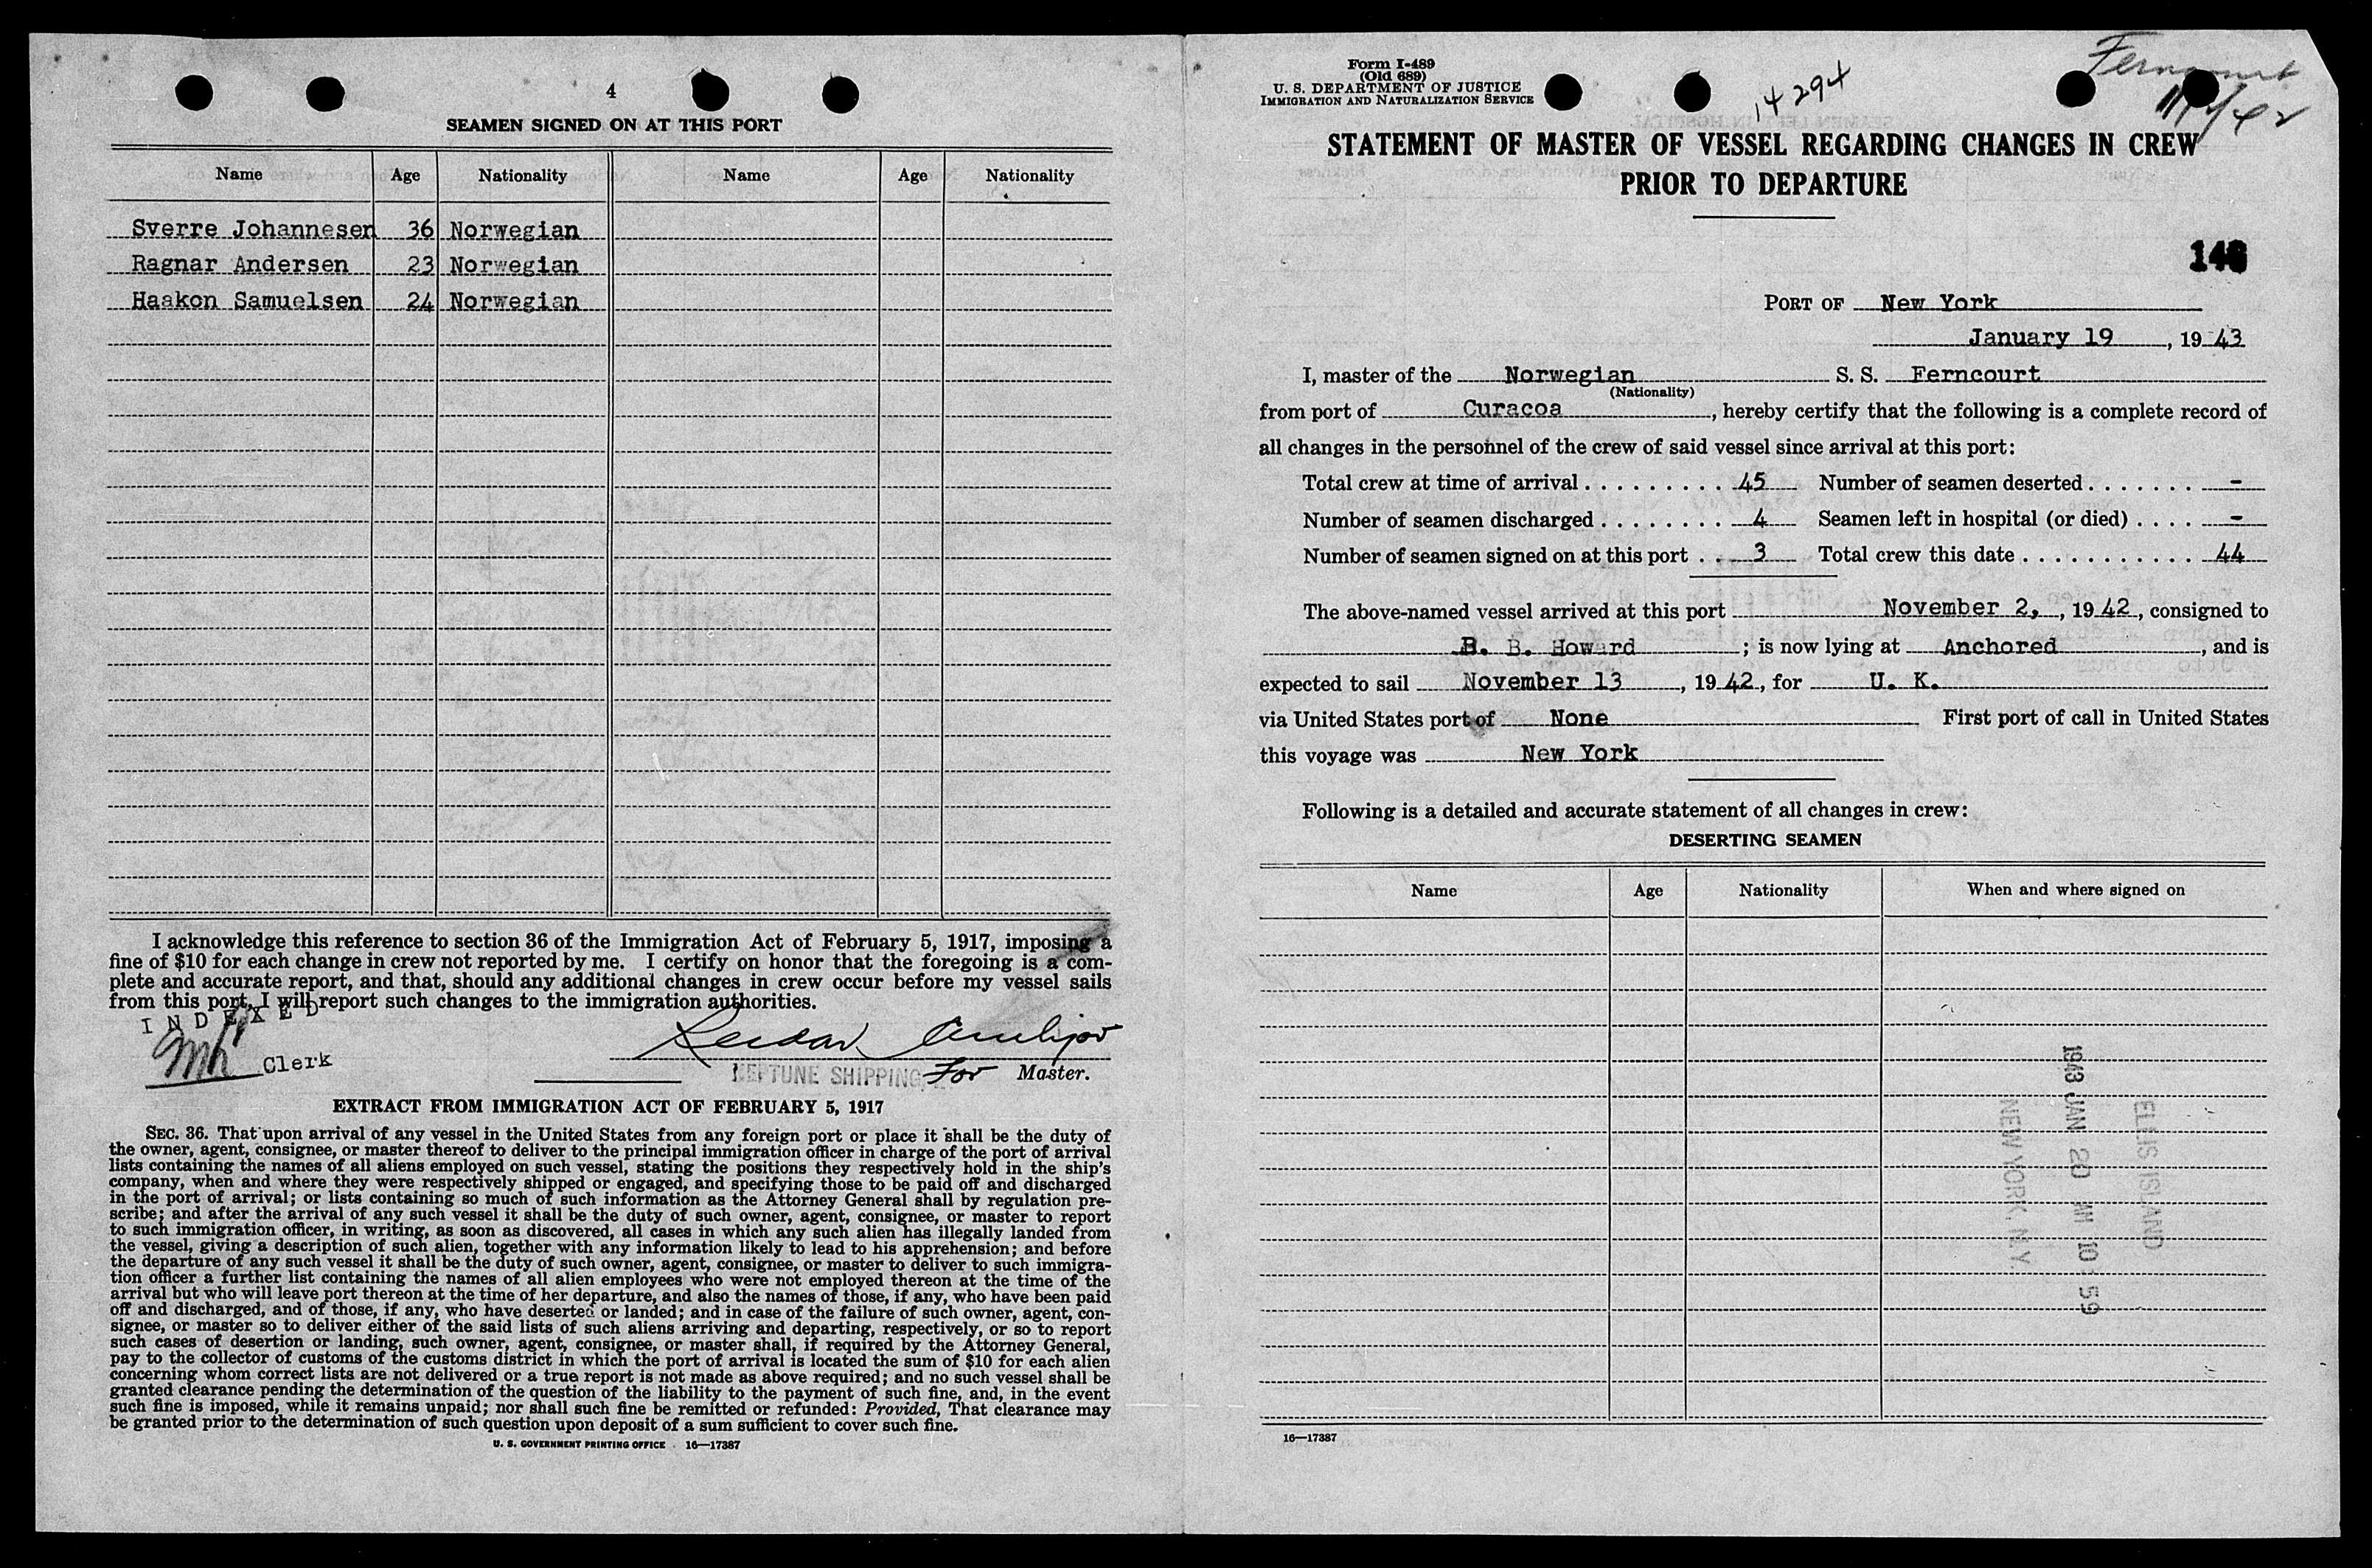 4
SEAMEN SIGNED ON AT THIS PORT
Name Age Nationality Name Age Nationality
Sverre Johannesen 36 Norwegian
Ragnar Andersen 23 Norwegian
Haakon Samuelsen 24 Norwegian
I acknowledge this reference to section 36 of the Immigration Act of February 5, 1917, imposing a
fine of $10 for each change in crew not reported by me. I certify on honor that the foregoing is a com-
plete and accurate report, and that, should any additional changes in crew occur before my vessel sails
from this port, I will report such changes to the immigration authorities.
INDEXED
Clerk
NEPTUNE SHIPPING For Master.
EXTRACT FROM IMMIGRATION ACT OF FEBRUARY 5, 1917
SEC. 36. That upon arrival of any vessel in the United States from any foreign port or place it shall be the duty of
the owner, agent, consignee, or master thereof to deliver to the principal immigration officer in charge of the port of arrival
lists containing the names of all aliens employed on such vessel, stating the positions they respectively hold in the ship's
company, when and where they were respectively shipped or engaged, and specifying those to be paid off and discharged
in the port of arrival; or lists containing so much of such information as the Attorney General shall by regulation pre-
scribe; and after the arrival of any such vessel it shall be the duty of such owner, agent, consignee, or master to report
to such immigration officer, in writing, as soon as discovered, all cases in which any such alien has illegally landed from
the vessel, giving a description of such alien, together with any information likely to lead to his apprehension; and before
the departure of any such vessel it shall be the duty of such owner, agent, consignee, or master to deliver to such immigra-
tion officer a further list containing the names of all alien employees who were not employed thereon at the time of the
arrival but who will leave port thereon at the time of her departure, and also the names of those, if any, who have been paid
off and discharged, and of those, if any, who have deserted or landed; and in case of the failure of such owner, agent, con-
signee, or master so to deliver either of the said lists of such aliens arriving and departing, respectively, or so to report
such cases of desertion or landing, such owner, agent, consignee, or master shall, if required by the Attorney General,
pay to the collector of customs of the customs district in which the port of arrival is located the sum of $10 for each alien
concerning whom correct lists are not delivered or a true report is not made as above required; and no such vessel shall be
granted clearance pending the determination of the question of the liability to the payment of such fine, and, in the event
such fine is imposed, while it remains unpaid; nor shall such fine be remitted or refunded: Provided, That clearance may
be granted prior to the determination of such question upon deposit of a sum sufficient to cover such fine.
U. S. GOVERNMENT PRINTING OFFICE 16—17387
Form I-489
(Old 689)
U. S. DEPARTMENT OF JUSTICE
IMMIGRATION AND NATURALIZATION SERVICE
14294
Ferncourt
STATEMENT OF MASTER OF VESSEL REGARDING CHANGES IN CREW
PRIOR TO DEPARTURE
PORT OF New York
January 19, 1943
I, master of the Norwegian S. S. Ferncourt
(Nationality)
from port of Curacoa, hereby certify that the following is a complete record of
all changes in the personnel of the crew of said vessel since arrival at this port:
Total crew at time of arrival . . . . . . . . . . 45 Number of seamen deserted . . . . . . . -
Number of seamen discharged . . . . . . . . 4 Seamen left in hospital (or died) . . . . -
Number of seamen signed on at this port . . 3 Total crew this date . . . . . . . . . . . . 44
The above-named vessel arrived at this port November 2, , 1942, consigned to
B. B. Howard ; is now lying at Anchored , and is
expected to sail November 13 , 1942, for U. K.
via United States port of None First port of call in United States
this voyage was New York
Following is a detailed and accurate statement of all changes in crew:
DESERTING SEAMEN
Name Age Nationality When and where signed on
ELLIS ISLAND
1943 JAN 20 AM 10 59
NEW YORK, N.Y.
16—17387